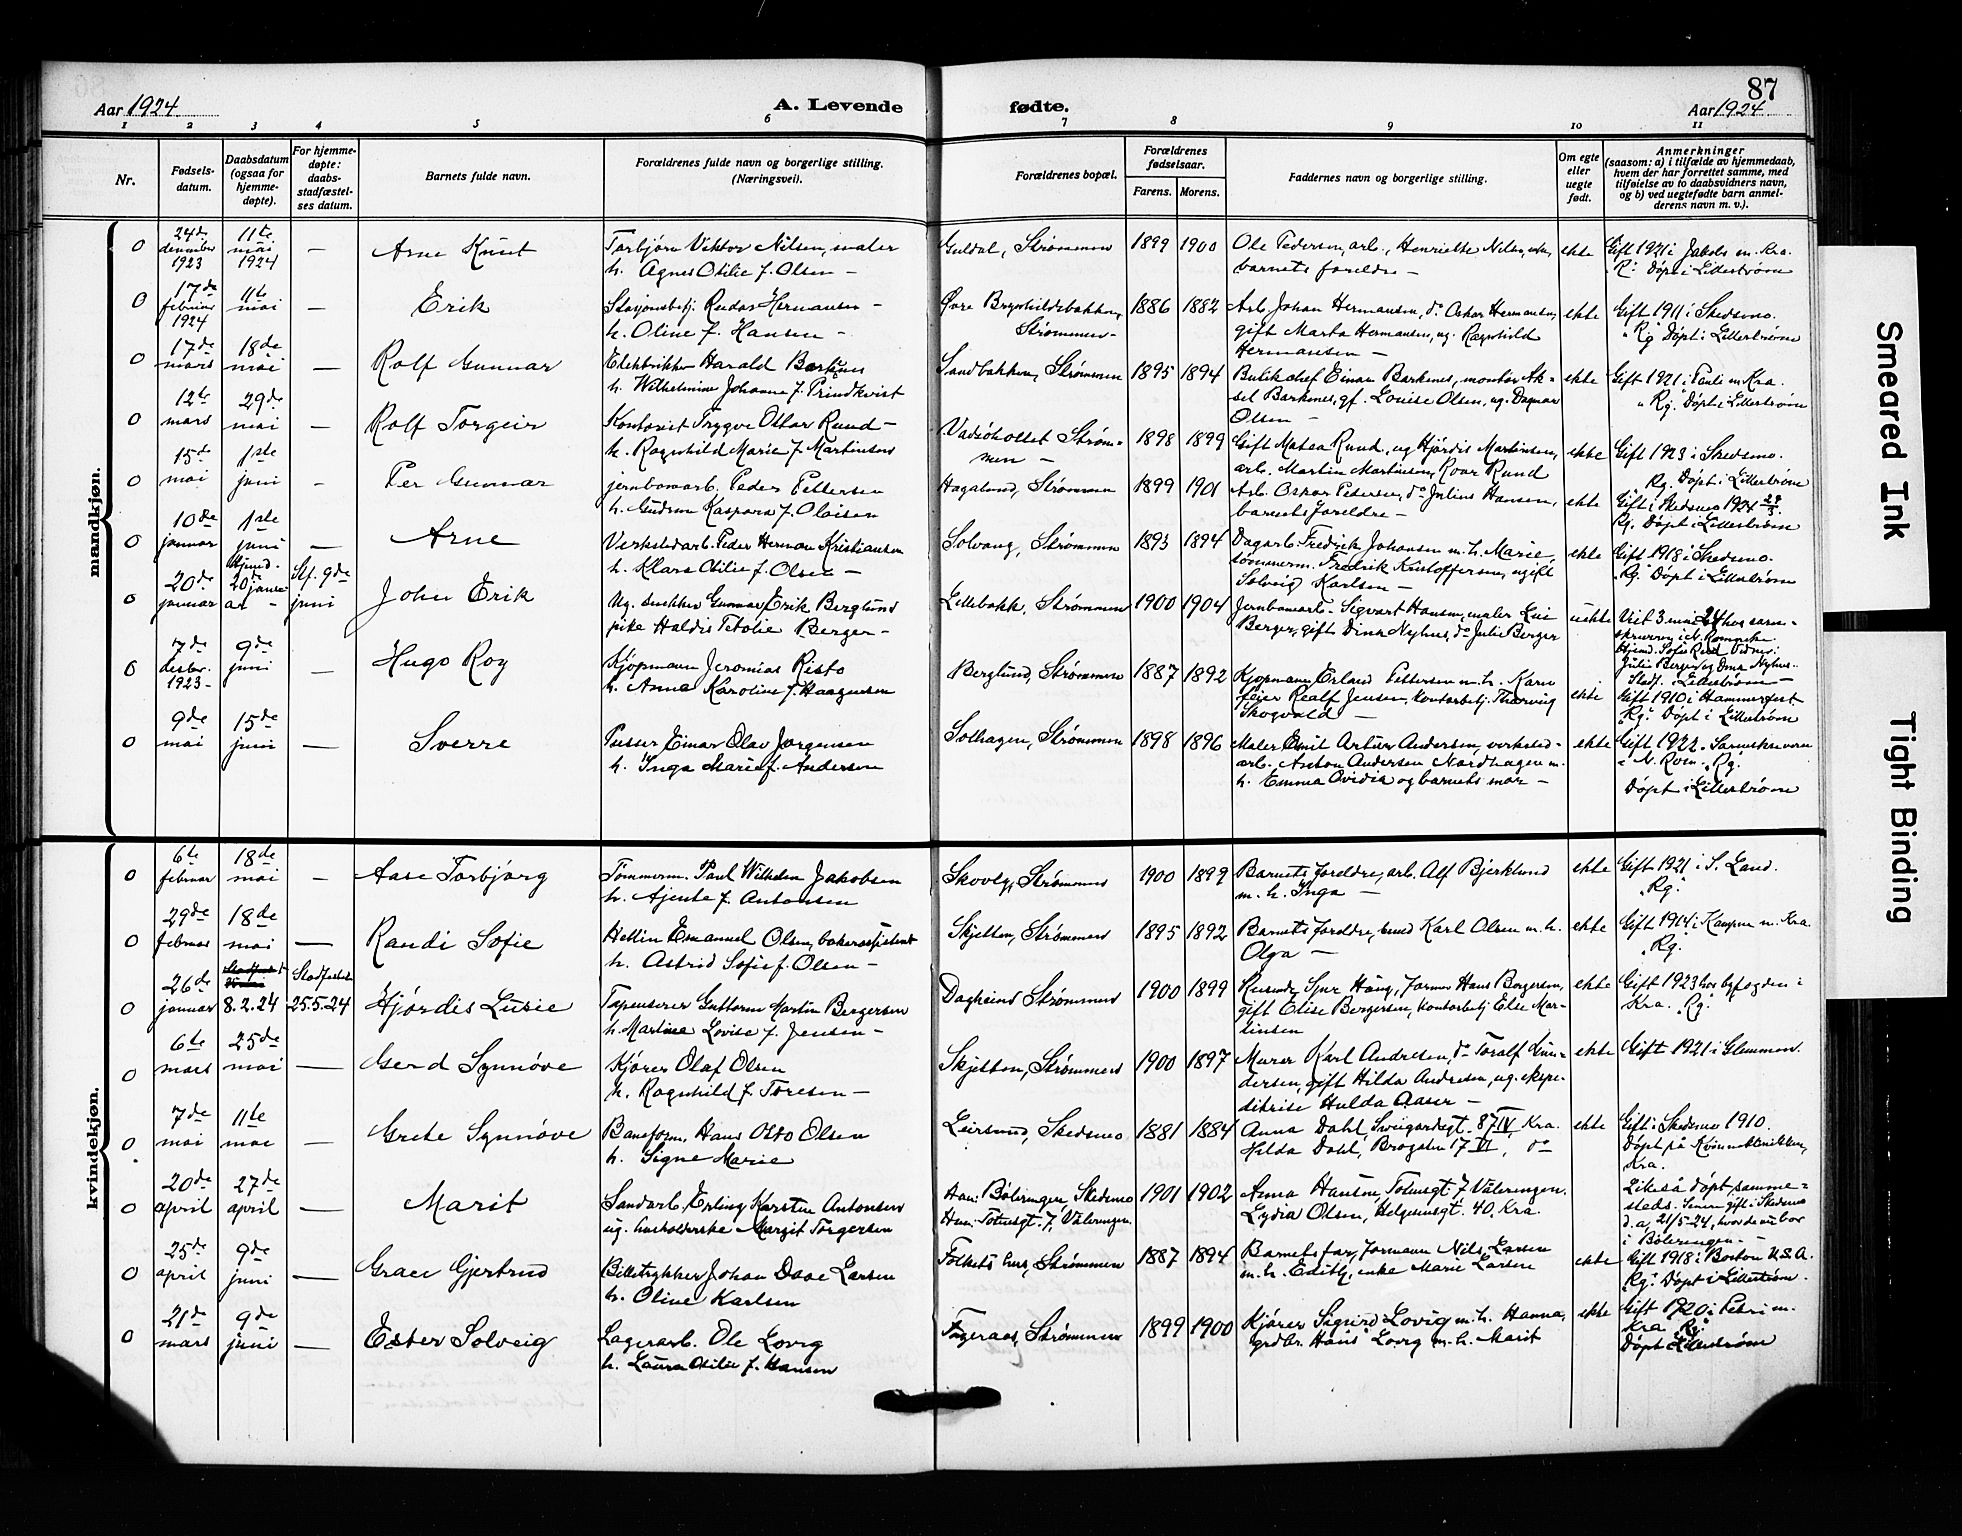 87
Aar 1924
A. Levende
fødte.
Aar 1924
1 2 3 4 5 6 7 8 9 10 11
Nr.
Fødsels-
datum.
Daabsdatum
(ogsaa for
hjemme-
døpte).
For hjemme-
døpte:
daabs-
stadfæstel-
ses datum.
Barnets fulde navn.
Forældrenes fulde navn og borgerlige stilling.
(Næringsvei).
Forældrenes bopæl.
Forældrenes
fødselsaar.
Farens. Morens.
Faddernes navn og borgerlige stilling.
Om egte
eller
uegte
født.
Anmerkninger
(saasom: a) i tilfælde av hjemmedaab,
hvem der har forrettet samme, med
tilføielse av to daabsvidners navn,
og b) ved uegtefødte barn anmel-
derens navn m. v.).
mandkjøn.
0 24de december 1923 11te mai 1924 — Arne Knut
Torbjørn Viktor Nilsen, maler
h. Agnes Otilie f. Olsen —
Guldal, Strømmen 1899 1900
Ole Pedersen, arb., Henriette Nilsen,
barnets foreldre —
ekte
Gift 1921 i Jakobs m. Kra.
"Rg." Døpt i Lillestrøm
0 17de februar 1924 11te mai — Erik
Stasjonsbetj. Reidar Hermansen —
h. Oline f. Hansen —
Øvre Brynhildsbakken,
Strømmen —
1886 1882
Arb. Johan Hermansen, do Oskar Hermansen,
gift Marta Hermansen, ug. Ragnhild
Hermansen —
ekte
Gift 1911 i Skedsmo.
"Rg." Døpt i Lillestrøm
0 17de mars 18de mai — Rolf Gunnar
Elektriker Harald Barkenes
h. Wilhelmine Johanne f. Prindkvist
Sandbakken, Strømmen 1895 1894
Butikchef Einar Barkenes, montør Ak-
sel Barkenes, gf. Louise Olsen, ug. Dagmar
Olsen —
ekte
Gift 1921 i Pauli m. Kra.
"Rg." Døpt i Lillestrøm
0 12te mars 29de mai — Rolf Torgeir
Kontorist Trygve Oskar Rund —
h. Ragnhild Marie f. Martinsen
Strøm-
men —
1898 1899
Gift Matea Rund, ug Hjørdis Martinsen,
arb. Martin Martinsen, Roar Rund
ekte
Gift 1923 i Skedsmo.
Rg. Døpt i Lillestrøm
0 15de mai 1ste juni — Per Gunnar
jernbanearb. Peder Pettersen
h. Gudrun Kaspara f. Olaisen
Hagalund, Strømmen 1899 1901
Arb. Oskar Pedersen, do Julius Hansen,
barnets foreldre —
ekte
Gift i Skedsmo 1924
Rg. Døpt i Lillestrøm
0 10de januar 1ste juni — Arne
Verkstedarb. Peder Herman Kristiansen
h. Klara Otilie f. Olsen —
Solvang, Strømmen 1893 1894
Dagarb. Fredrik Johansen m. h. Marie,
tømmerm. Fredrik Kristoffersen, ugift
Solveig Karlsen —
ekte
Gift 1918 i Skedsmo.
"Rg." Døpt i Lillestrøm
0 20de januar Hjemd. 20de janu-
ar — Stf. 9de juni John Erik
Ug. snekker Gunnar Erik Berglund
pike Haldis Petolie Berger —
Lillebakk, Strømmen 1900 1904
Jernbanearb. Sigvart Hansen, maler
Berger, gift Dina Nyhus, do Julie Berger
uekte
Viet 3 mai 24 hos soren-
skriveren i N. Romerike.
Julie Berger og Dina Nyhus.
Stadf. i Lillestrøm —
0 7de desbr. 1923 — 9de juni — Hugo Roy
Kjøpmann Jeremias Risto
h. Anna Karoline f. Haagensen
Berglund, Strømmen 1887 1892
Kjøpmann Erland Pettersen m. h. Karen
feier Realf Jensen, Kontorbetj. Thorvig
Skogvold —
ekte
Gift 1910 i Hammerfest.
"Rg." Døpt i Lillestrøm
0 9de mai 15de juni — Sverre
Pusser Einar Olav Jørgensen
h. Inga Marie f. Andersen
Solhagen, Strømmen 1898 1896
Maler Emil Artur Andersen, verksted-
arb. Anton Andersen Nordhagen m.
h. Emma Ovidia og barnets mor —
ekte
Gift 1922. Sorenskriveren
i N. Rom. "Rg."
Døpt i Lillestrøm
kvindekjøn.
0 6te februar 18de mai — Aase Torbjørg
Tømmerm. Paul Wilhelm Jakobsen
h. Agente f. Antonsen
Skovly, Strømmen 1900 1899
Barnets foreldre, arb. Alf Bjerklund
m. h. Inga —
ekte
Gift 1921 i S. Land.
"Rg."
0 29de februar 18de mai — Randi Sofie
Helbin Emanuel Olsen, bakerassistent
h. Astrid Sofie f. Olsen —
Skjetten, Strømmen 1895 1892
Barnets foreldre, Karl Olsen m. h.
Olga —
ekte
Gift 1914 i Kampen m. Kra.
Rg.
0 26de januar 8.2.24 Stadfestet 25.5.24 Hjørdis Lusie
Tapetserer Guttorm Martin Bergersen
h. Martine Lovise f. Jensen —
Dagheim Strømmen 1900 1899
Haug, Former Hans Bergersen,
gift Elise Bergersen, Kontorbetj Else Mar-
tinsen
ekte
Gift 1923 hos byfogden i
Kra. "Rg."
0 6te mars 25de mai — Gerd Synnøve
Kjører Olaf Olsen
h. Ragnhild f. Toresen —
Skjetten, Strømmen 1900 1897
Murer Karl Andresen, do Toralf Gun-
dersen, gift Hilda Andresen, ug. ekspe-
ditrise Hulda Aaser —
ekte
Gift 1921 i Glemmen.
0 7de mai 11te mai — Grete Synnøve
Baneform. Hans Otto Olsen
h. Signe Marie
Leirsund, Skedsmo 1881 1884
Anna Dahl, Sveigaardsgt. 87 IV, Kra.
Hilda Dahl, Brogaten 17 VI, do
ekte
Gift i Skedsmo 1910.
Døpt på Kvinneklinikken,
Kra.
0 20de april 27de april — Marit
Sandarb. Erling Karsten Antonsen
ug. husholderske Margit Torgersen
Han: Bøleringen, Skedsmo
Hun: Totensgt. 7, Vålerengen.
1901 1902
Anna Hansen, Totensgt 7 Vålerengen.
Lydia Olsen, Helgesensgt. 40. Kra.
Likeså døpt samme-
steds. Senere gift i Skedsmo
d. a. 21/5-24, hvor de nu bor
i Bøleringen. —
0 25de april 9de juni — Grace Gjertrud
Billettrykker Johan Daae Larsen
h. Oline Karlsen
Folkets hus, Strømmen 1887 1894
Barnets far, Formann Nils Larsen
m. h. Edith, enke Marie Larsen
ekte
Gift 1918 i Boston U.S.A.
"Rg." Døpt i Lillestrøm.
0 21de mars 9de juni — Ester Solveig
Lagerarb. Ole Lovig
h. Laura Otilie f. Hansen
Fageraas, Strømmen 1899 1900
Kjører Sigurd Lovig m. h. Hanna,
grdbr. Hans Lovig m. h. Marit
ekte
Gift 1920 i Petri m.
Kra. "Rg."
Døpt i Lillestrøm
Smeared Ink
Tight Binding